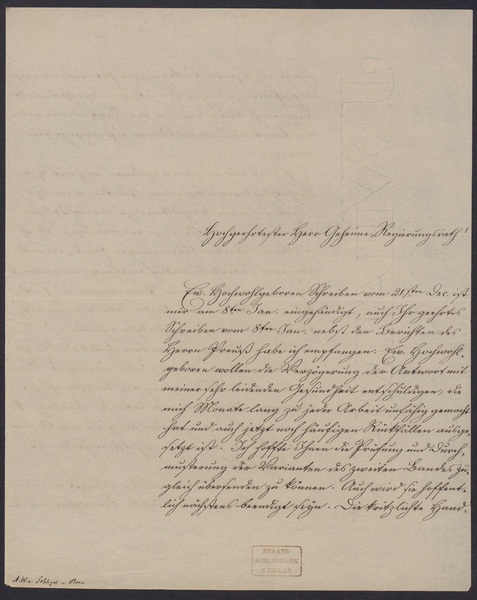 Hochgeehrtester Herr Geheime Regierungsrath!
Ew. Hochwohlgeboren Schreiben vom 21sten Dec. ist
mir am 8ten Jan. eingehändigt, auch Ihr geehrtes
Schreiben vom 8ten Jan. nebst den Berichten des
Herrn Preuß habe ich empfangen. Ew. Hochwohl-
geboren wollen die Verzögerung der Antwort mit
meiner sehr leidenden Gesundheit entschuldigen, die
mich Monate lang zu jeder Arbeit unfähig gemacht
hat und auch jetzt noch häufigen Rückfällen ausge-
setzt ist. Ich hoffte Ihnen die Prüfung und Durch-
musterung der Varianten des zweiten Bandes zu-
gleich übersenden zu können. Auch wird sie hoffent-
lich nächstens beendigt seyn. Die kritzlichte Hand-
STAATS
BIBLIOTHEK
BERLIN
A. W. v. Schlegel – Bonn